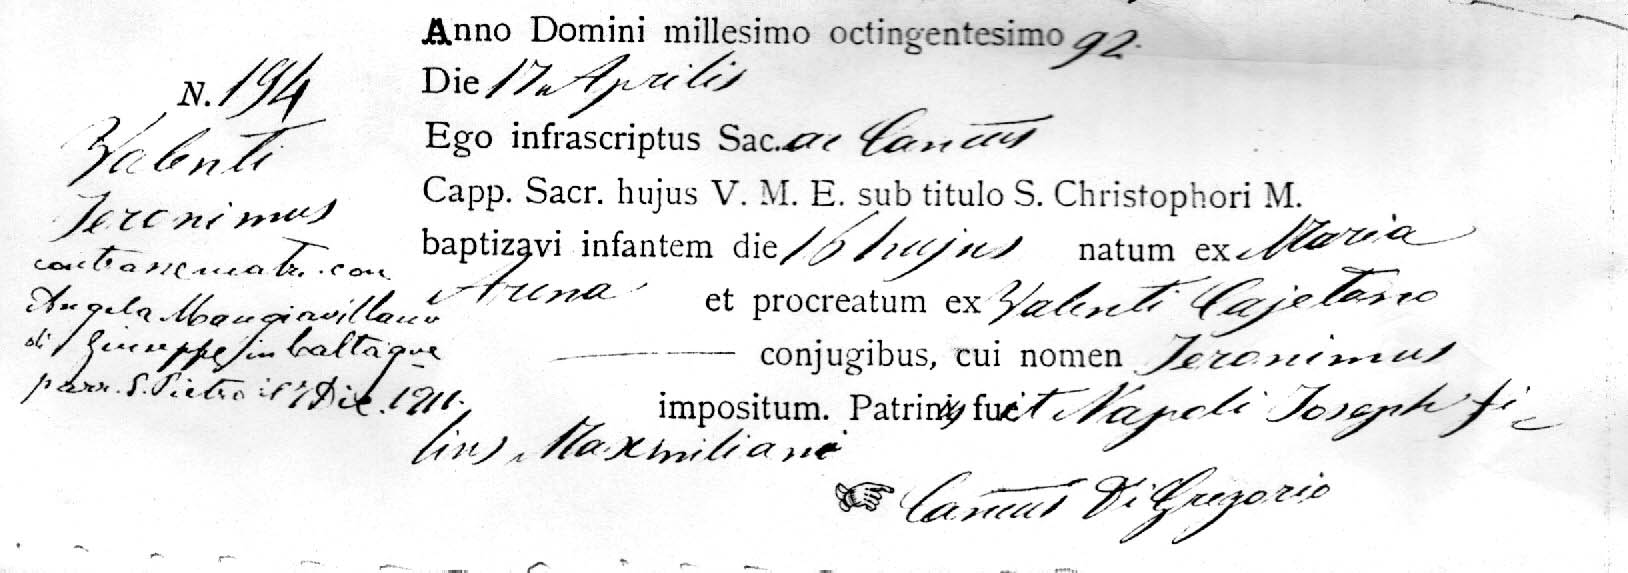 Anno Domini millesimo octingentesimo 92.
N. 194
Die 17 Aprilis
Ego infrascriptus Sac. ac Can.cus
Valenti
Capp. Sacr. hujus V. M. E. sub titulo S. Christophori M.
Jeronimus
baptizavi infantem die 16 hujus natum ex Maria
contrasse matr. con
Arena et procreatum ex Valenti Cajetano
Angela Mangiavillano
di Giuseppe in Caltaque
conjugibus, cui nomen Jeronimus
parr. S. Pietro il 7 Dic. 1911.
impositum. Patrinus fuit Napoli Joseph fi-
lius Maxmiliani
Can.cus Di Gregorio